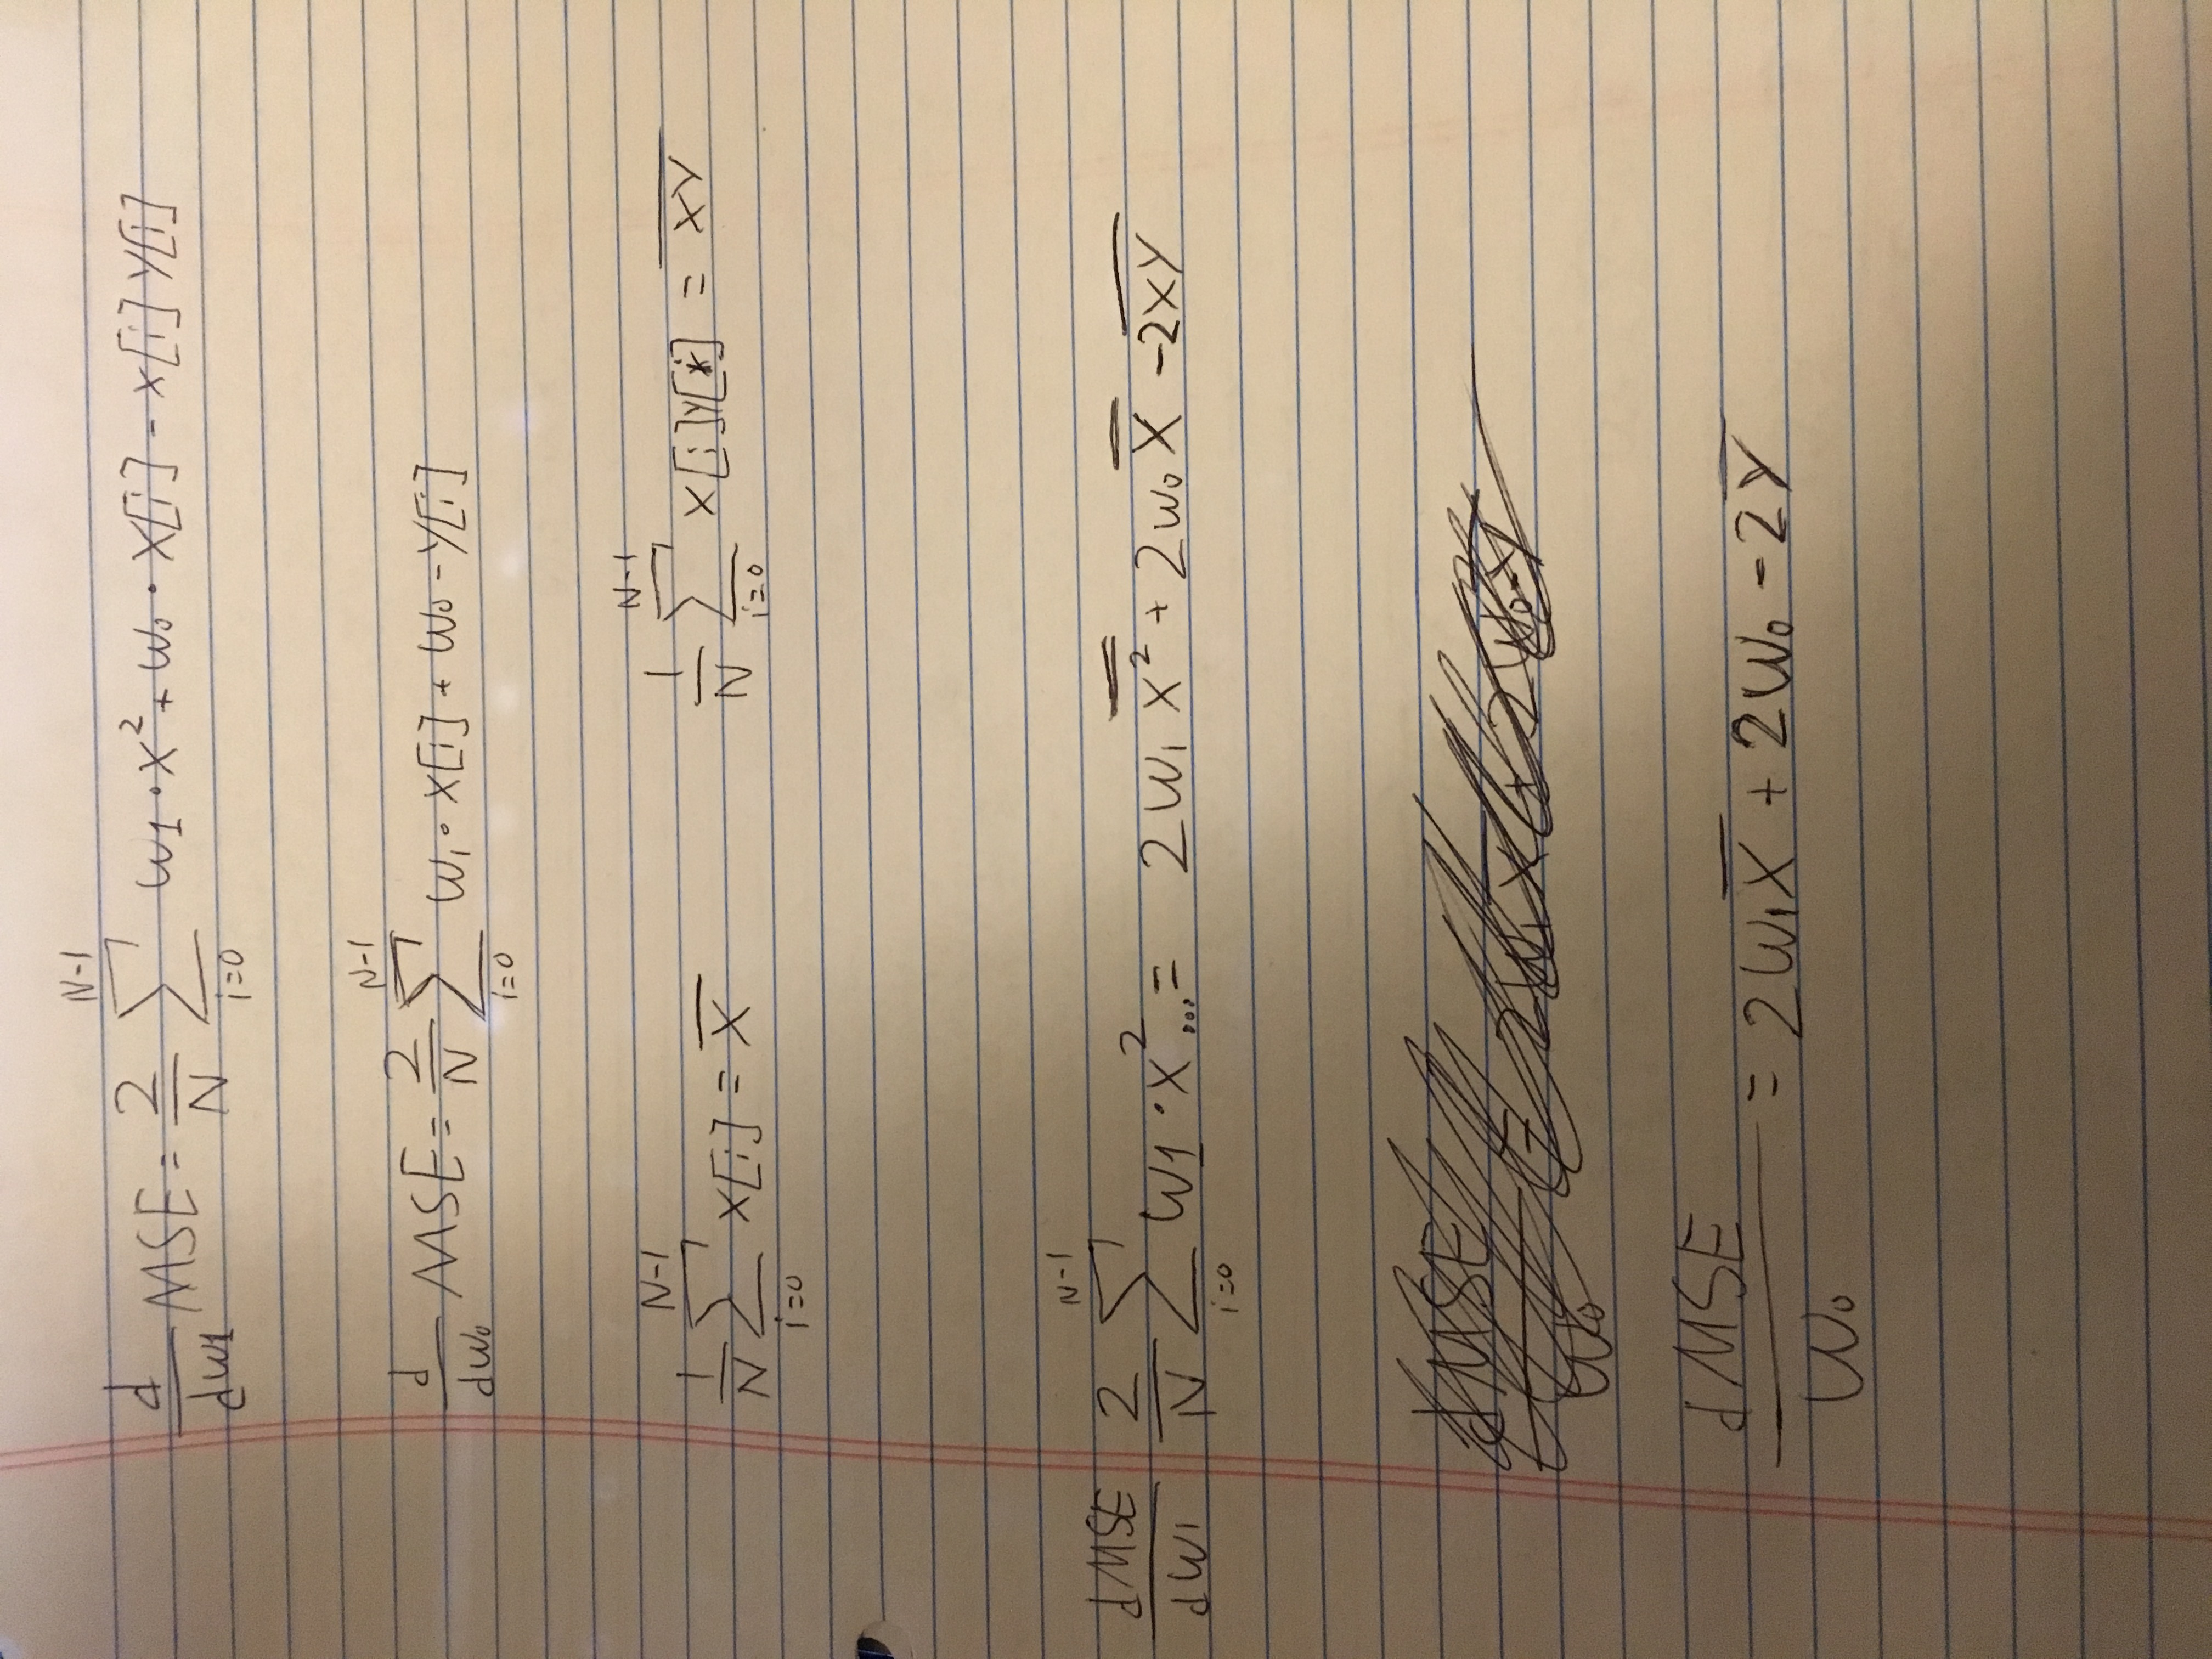 d/dw1 MSE = 2/N ∑_{i=0}^{N-1} w1 · x² + w₀ · x[i] - x[i] y[i]
d/dw₀ MSE = 2/N ∑_{i=0}^{N-1} w₁ · x[i] + w₀ - y[i]
1/N ∑_{i=0}^{N-1} x[i] = x̅    1/N ∑_{i=0}^{N-1} x[i]y[i] = \overline{xy}
dMSE/dw₁ 2/N ∑_{i=0}^{N-1} w1 · x² ... = 2w₁ \overline{x²} + 2w₀ x̅ - \overline{2xy}
dMSE/w₀ = 2w₁x + 2w₀ - y̅
dMSE/w₀ = 2w₁x̅ + 2w₀ - 2y̅